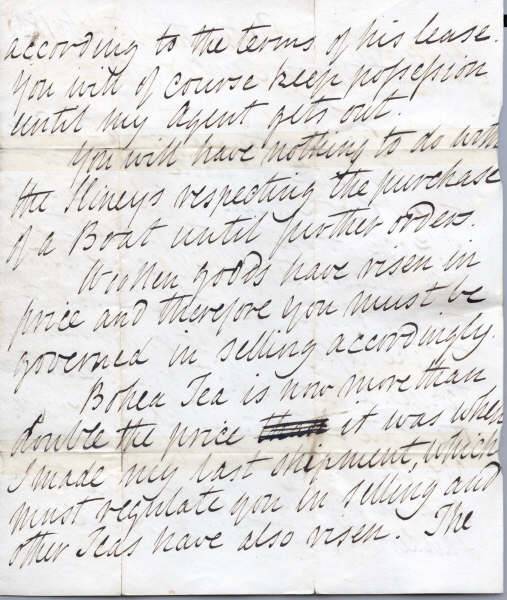 according to the terms of his lease.
You will of course keep possession
until my Agent gets out.
You will have nothing to do with
the Slineys respecting the purchase
of a Boat until further orders.
Woollen goods have risen in
price and therefore you must be
governed in selling accordingly.
Bohea Tea is now more than
double the price it was when
I made my last shipment, which
must regulate you in selling and
other Teas have also risen. The